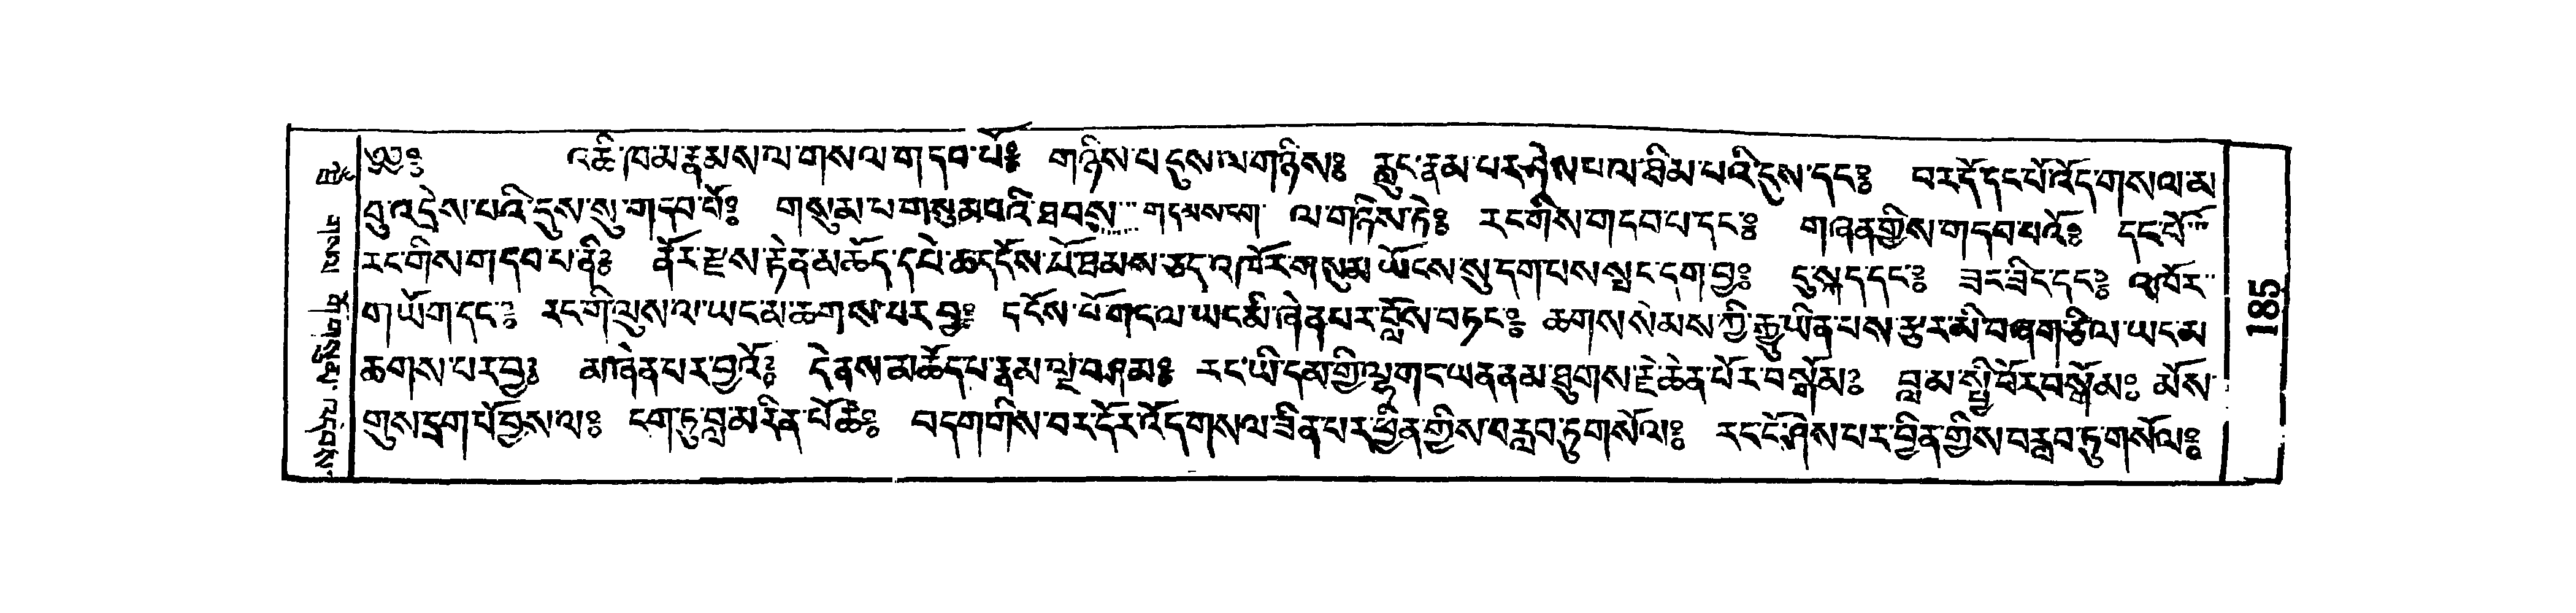 ༄༅༔ འཆི་ཁ་མ་རྣམས་ལ་གསལ་གདབ་པོ༔ གཉིས་པ་དུས་ལ་གཉིས༔ རླུང་རྣམ་པར་ཤེས་པ་ལ་ཐིམ་པའི་དུས་དང༔ བར་དོ་དང་པོ་འོད་གསལ་མ་
བུ་འདྲེས་པའི་དུས་སུ་གདབ་བོ༔ གསུམ་པ་གསུམ་པའི་ཐབས་སུ་གདམས་ངག་ལ་གཉིས་ཏེ༔ རང་གིས་གདབ་པ་དང༔ གཞན་གྱིས་གདབ་པའོ༔ དང་པོ་
རང་གིས་གདབ་པ་ནི༔ ནོར་རྫས་རྟེན་མཆོད་དཔེ་ཆད་དངོས་པོ་ཐམས་ཅད་འཁོར་གསུམ་ཡོངས་སུ་དག་པས་སྤང་དག་བྱ༔ དུ་སྐད་དང༔ ཟང་ཟིང་དང༔ འཁོར་
གཡོག་དང༔ རང་གི་ལུས་ལ་ཡང་མ་ཆགས་པར་བྱ༔ དངོས་པོ་གང་ལ་ཡང་མི་ཞེན་པར་བློས་བཏང༔ ཆགས་སེམས་ཀྱི་རྒྱུ་ཡིན་པས་ལྕར་མི་བཞག་ཅིལ་ཡང་མ་
ཆགས་པར་བྱ༔ མ་ཞེན་པར་བྱའོ༔ དེ་ནས་མཆོད་པ་རྣམ་ལྔ་བཤམ༔ རང་ཡི་དམ་གྱི་ལྷ་གང་ཡན་ནམ་ཐུགས་རྗེ་ཆེན་པོར་བསྒོམ༔ བླ་མ་སྤྱི་བོར་བསྒོམ༔ མོས་
གུས་དྲག་པོ་བྱས་ལ༔ ངག་ཏུ་བླ་མ་རིན་པོ་ཆེ༔ བདག་གིས་བར་དོར་འོད་གསལ་ཟིན་པར་བྱིན་གྱིས་བརླབ་ཏུ་གསོལ༔ རང་ངོ་ཤེས་པར་བྱིན་གྱིས་བརླབ་ཏུ་གསོལ༔
185